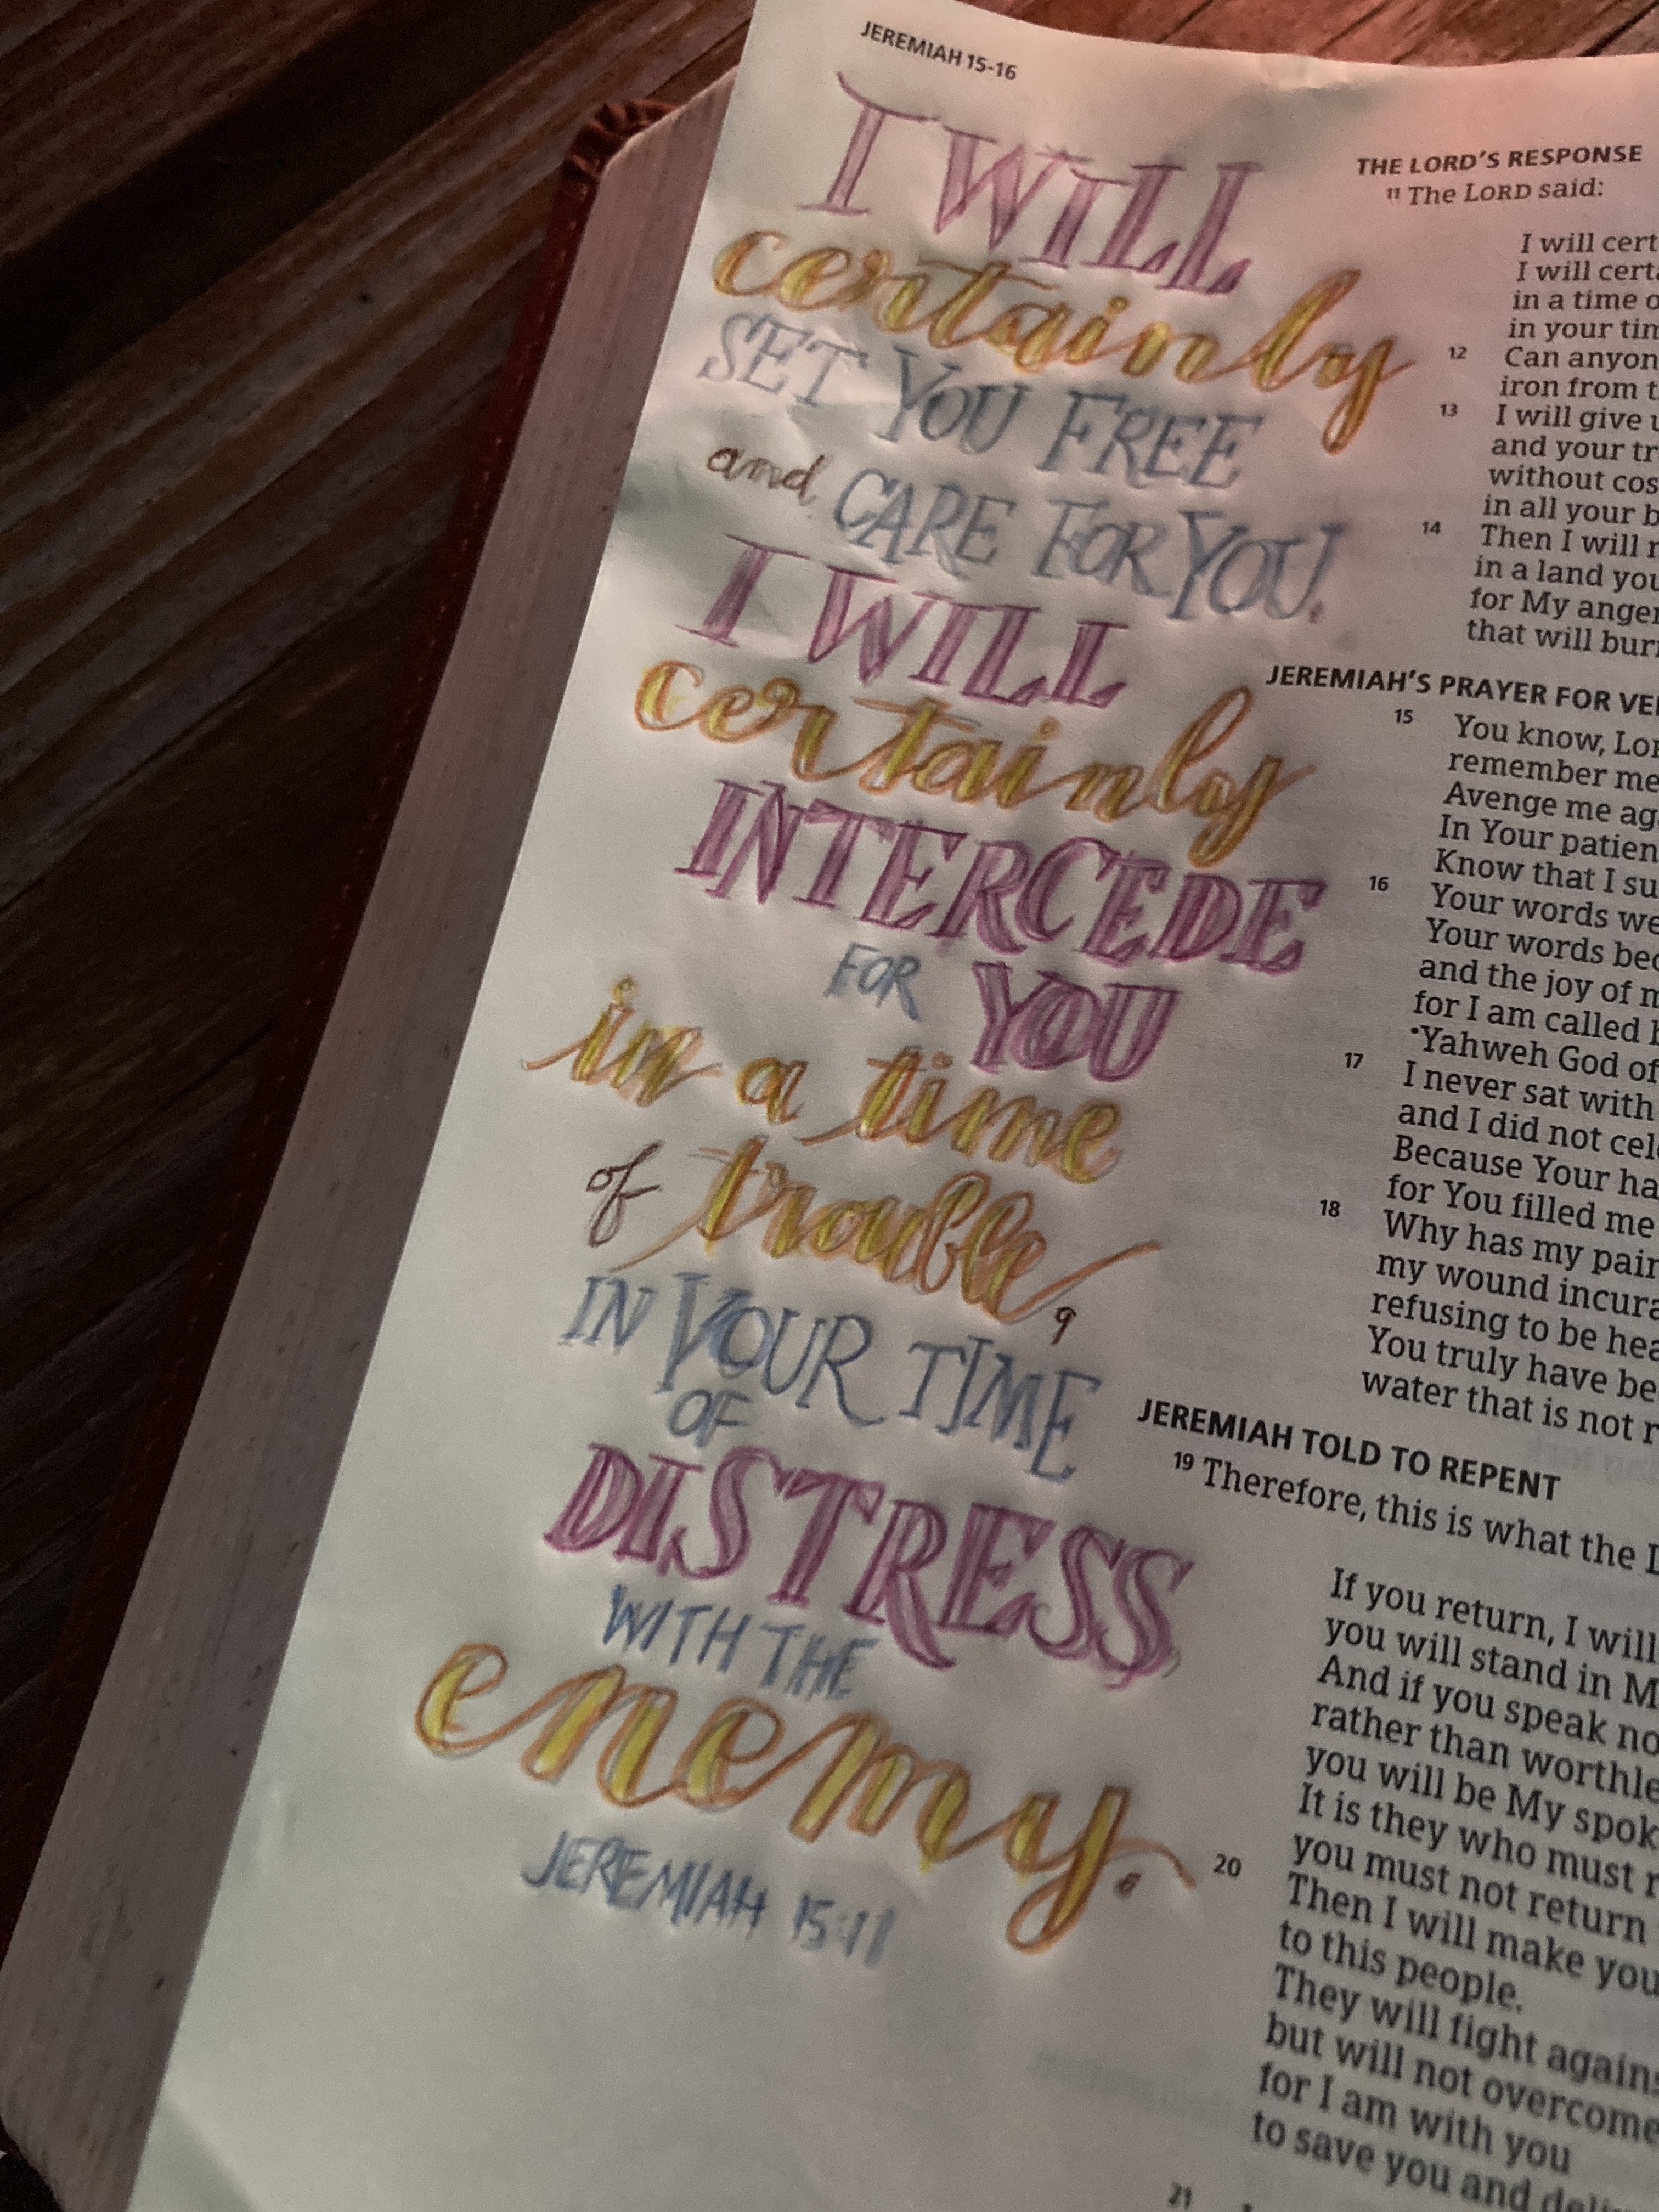 JEREMIAH 15-16
I WILL
certainly
SET YOU FREE
and CARE FOR YOU.
I WILL
certainly
INTERCEDE
FOR YOU
in a time
of trouble,
IN YOUR TIME
OF
DISTRESS
WITH THE
enemy.
JEREMIAH 15:11
THE LORD'S RESPONSE
11 The LORD said:
I will
I will
in a time
in your
12 Can
iron from
13 I will give
and your
without
in all your
14 Then I will
in a land
for My anger
that will
JEREMIAH'S PRAYER FOR
15 You know,
remember me
Avenge me
In Your
Know that I
16 Your words
Your words
and the joy of
for I am called
•Yahweh God of
17 I never sat with
and I did not
Because Your
for You filled me
18 Why has my
my wound
refusing to be
You truly have
water that is not
JEREMIAH TOLD TO REPENT
19 Therefore, this is what the
If you return, I will
you will stand in
And if you speak
rather than
you will be My
It is they who must
you must not return
20 Then I will make you
to this people.
They will fight
but will not overcome
for I am with you
to save you and
21